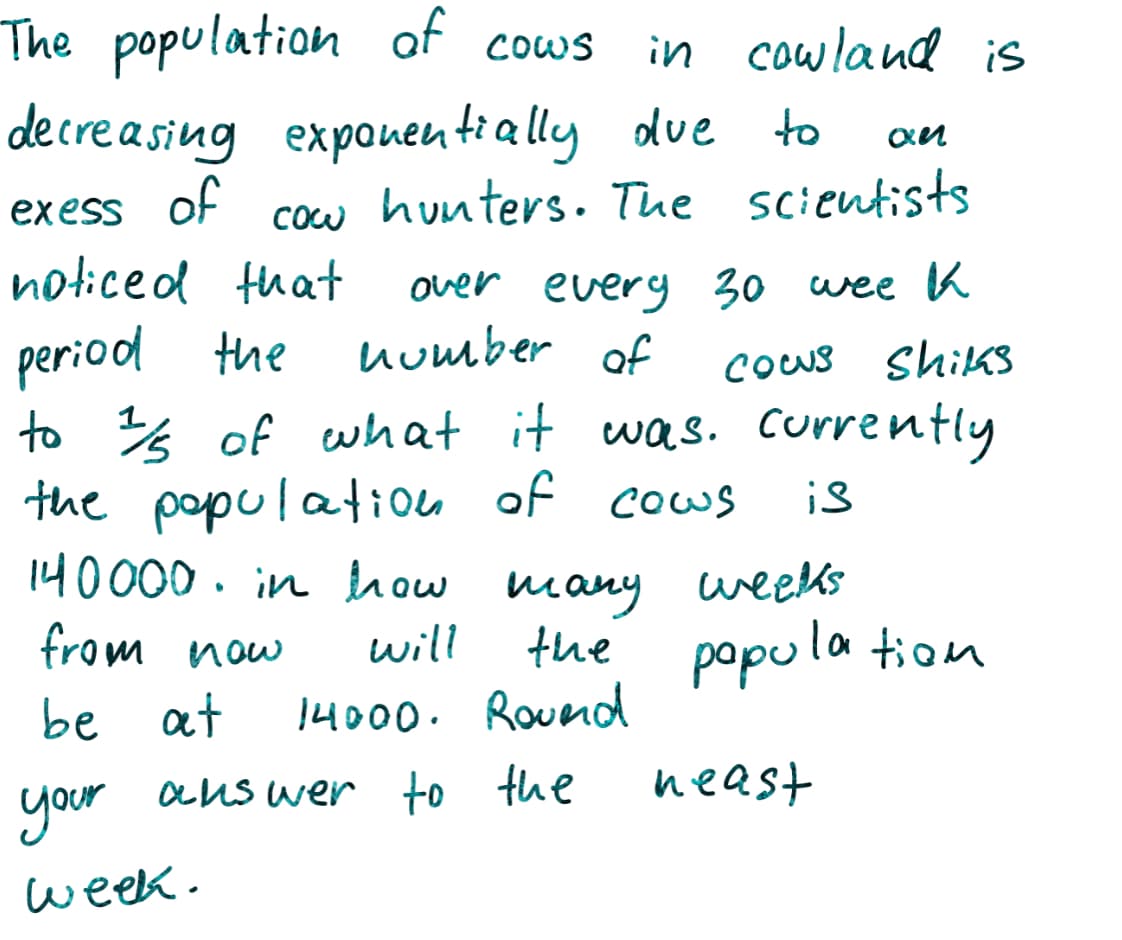 The population of cows in cowland is
decreasing exponentially due to an
exess of cow hunters. The scientists
noticed that over every 30 week
period the number of cows shiks
to 1/5 of what it was. Currently
the population of cows is
140000. in how many weeks
from now will the population
be at 14000. Round
your answer to the neast
week.